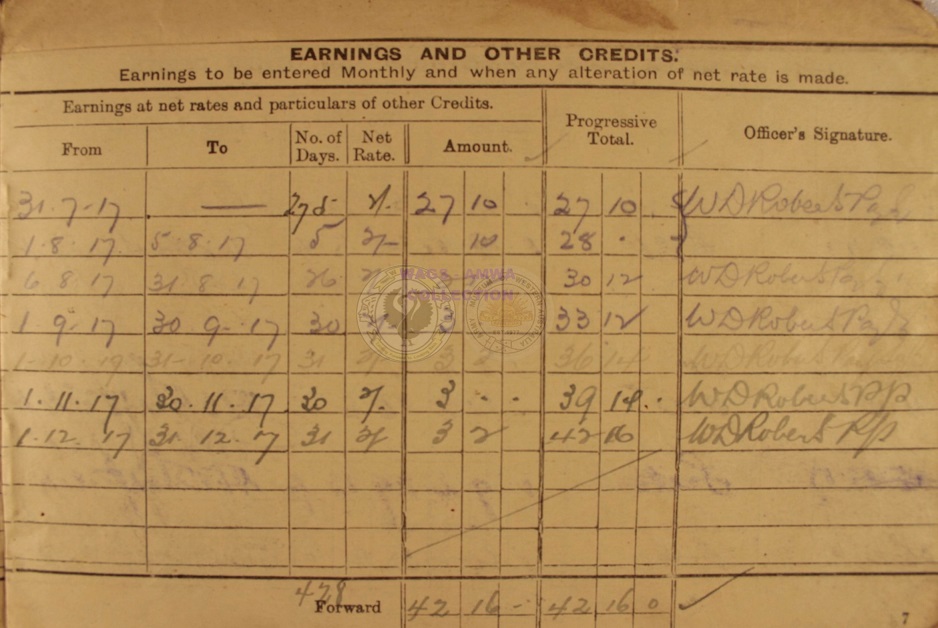 EARNINGS AND OTHER CREDITS.
Earnings to be entered Monthly and when any alteration of net rate is made.
Earnings at net rates and particulars of other Credits.
Progressive Total.
Officer's Signature.
From To No. of Days. Net Rate. Amount.
31.7.17 — 275 2/- 27 10 27 10 WD Roberts
1.8.17 5.8.17 5 2/- 10 28 .
6.8.17 31.8.17 26 2/- 30 12 WD Roberts
1.9.17 30.9.17 30 3 33 12 WD Roberts
1.10.17 31.10.17 31 2/- 3 2 36 14 WD Roberts
1.11.17 30.11.17 30 2/- 3 . . 39 14 . . WD Roberts
1.12.17 31.12.17 31 2/- 3 2 42 16 WD Roberts
478
Forward 42 16 - 42 16 0
7
WAGS AMWA
COLLECTION